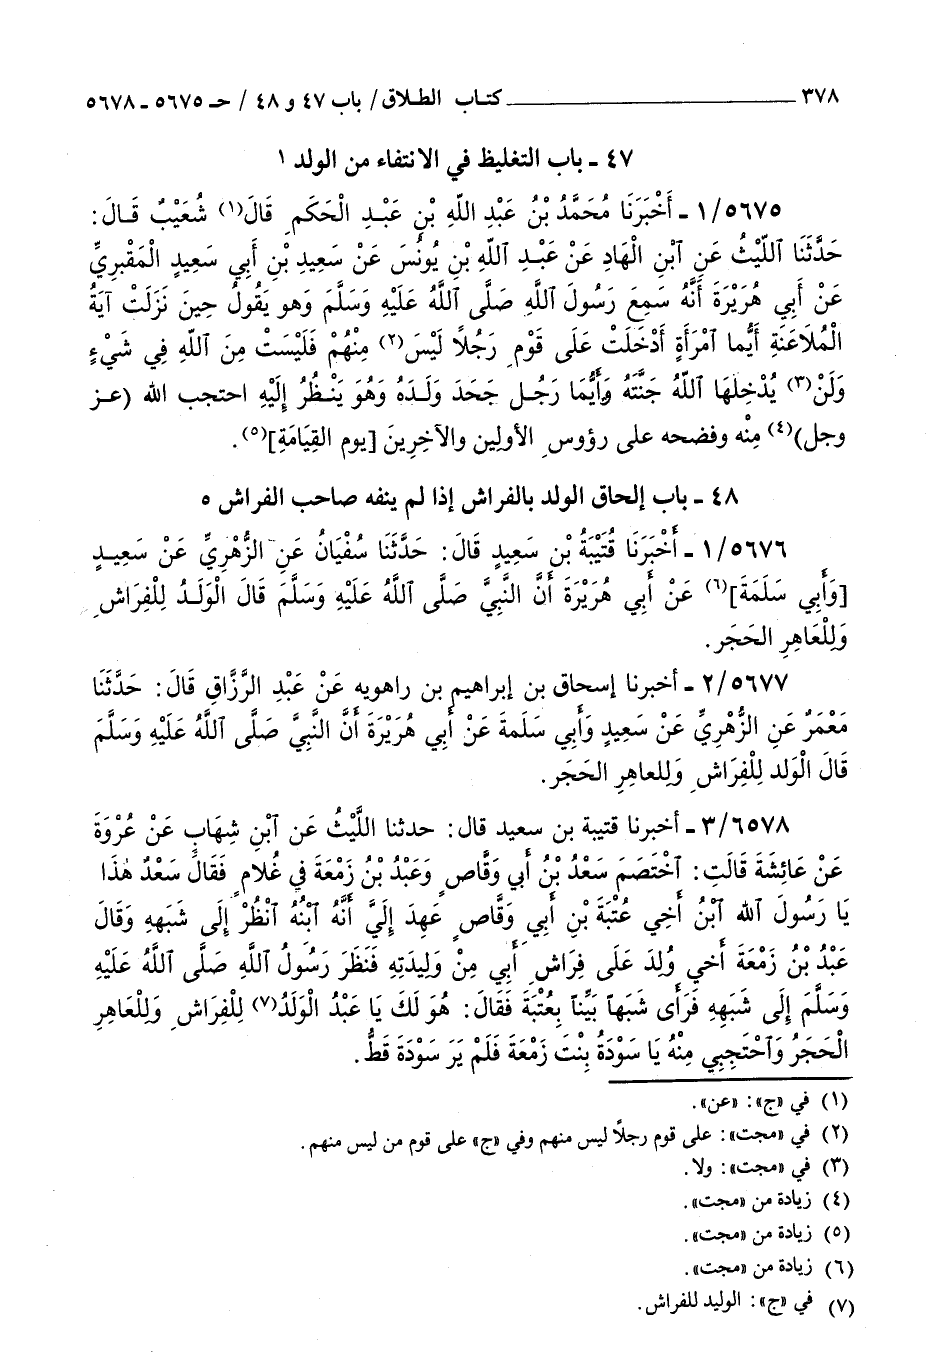 ٣٧٨ ــــــــــــــــــــــــــ كتاب الطلاق/ باب ٤٧ و ٤٨ / حـ ٥٦٧٥ ـ ٥٦٧٨
٤٧ ـ باب التغليظ في الانتفاء من الولد ١
١/٥٦٧٥ ـ أَخْبَرَنَا مُحَمَّدُ بْنُ عَبْدِ اللَّهِ بْنِ عَبْدِ الْحَكَمِ قَالَ(١) شُعَيْبٌ قَالَ:
حَدَّثَنَا ٱللَّيْثُ عَنِ ٱبْنِ الْهَادِ عَنْ عَبْدِ ٱللَّهِ بْنِ يُونُسَ عَنْ سَعِيدِ بْنِ أَبِي سَعِيدٍ الْمَقْبرِيِّ
عَنْ أَبِي هُرَيْرَةَ أَنَّهُ سَمِعَ رَسُولَ اللَّهِ صَلَّى ٱللَّهُ عَلَيْهِ وَسَلَّمَ وَهو يَقُولُ حِينَ نَزَلَتْ آيَةُ
الْمُلَاعَنَةِ أَيُّما ٱمْرَأَةٍ أَدْخَلَتْ عَلَى قَوْمٍ رَجُلًا لَيْسَ(٢) مِنْهُمْ فَلَيْسَتْ مِنَ ٱللَّهِ فِي شَيْءٍ
وَلَنْ(٣) يُدْخِلَهَا ٱللَّهُ جَنَّتَهُ وَأَيُّمَا رَجُلٍ جَحَدَ وَلَدَهُ وَهُوَ يَنْظُرُ إِلَيْهِ احتجب الله (عز
وجل)(٤) مِنْه وفضحه على رؤوسِ الأولين والآخِرِينَ [يوم القِيَامَةِ](٥).
٤٨ ـ باب إلحاق الولد بالفراش إذا لم ينفه صاحب الفراش ٥
١/٥٦٧٦ ـ أَخْبَرَنَا قُتَيْبَةُ بْن سَعِيدٍ قَالَ: حَدَّثَنَا سُفْيَانُ عَنِ الزُّهْرِيِّ عَنْ سَعِيدٍ
[وَأَبِي سَلَمَةَ](٦) عَنْ أَبِي هُرَيْرَةَ أَنَّ النَّبِيَّ صَلَّى ٱللَّهُ عَلَيْهِ وَسَلَّمَ قَالَ الْوَلَدُ لِلْفِرَاشِ
وَلِلْعَاهِرِ الحَجَر.
٢/٥٦٧٧ ـ أخبرنا إسحاق بن إبراهيم بن راهويه عَنْ عَبْدِ الرَّزَّاقِ قَالَ: حَدَّثَنَا
مَعْمَرٌ عَنِ الزُّهْرِيِّ عَنْ سَعِيدٍ وَأَبِي سَلَمةَ عَنْ أَبِي هُرَيْرَةَ أَنَّ النَّبِيَّ صَلَّى ٱللَّهُ عَلَيْهِ وَسَلَّمَ
قَالَ الْوَلد لِلْفِرَاشِ وَلِلعاهِرِ الحَجَر.
٣/٦٥٧٨ ـ أخبرنا قتيبة بن سعيد قال: حدثنا اللَّيْثُ عَنِ ٱبْنِ شِهَابٍ عَنْ عُرْوَةَ
عَنْ عَائِشَةَ قَالَتِ: ٱخْتَصَمَ سَعْدُ بْنُ أبي وَقَّاصٍ وَعَبْدُ بْنُ زَمْعَةَ فِي غُلَامٍ فَقَالَ سَعْدٌ هٰذَا
يَا رَسُولَ الله ٱبْنُ أَخِي عُتْبَةَ بْنِ أَبِي وَقَّاصٍ عَهِدَ إِلَيَّ أَنَّهُ ٱبْنُهُ ٱنْظُرْ إِلَى شَبَهِهِ وَقَالَ
عَبْدُ بْنُ زَمْعَةَ أَخي وُلِدَ عَلَى فِرَاشِ أَبِي مِنْ وَلِيدَتِهِ فَنَظَرَ رَسُولُ اللَّهِ صَلَّى ٱللَّهُ عَلَيْهِ
وَسَلَّمَ إِلَى شَبَهِهِ فَرَأَى شَبَهاً بَيِّناً بِعُتْبَةَ فَقَالَ: هُوَ لَكَ يَا عَبْدُ الْوَلَدُ(٧) لِلْفِرَاشِ وَلِلْعَاهِرِ
الْحَجَرُ وَٱحْتَجِبِي مِنْهُ يَا سَوْدَةُ بِنْتَ زَمْعَةَ فَلَمْ يَر سَوْدَةَ قَطُّ.
(١) في «ج»: «عن».
(٢) في «مجت»: على قوم رجلاً ليس منهم وفي «ج» على قوم من ليس منهم.
(٣) في «مجت»: ولا.
(٤) زيادة من «مجت».
(٥) زيادة من «مجت».
(٦) زيادة من «مجت».
(٧) في «ج»: الوليد للفراش.